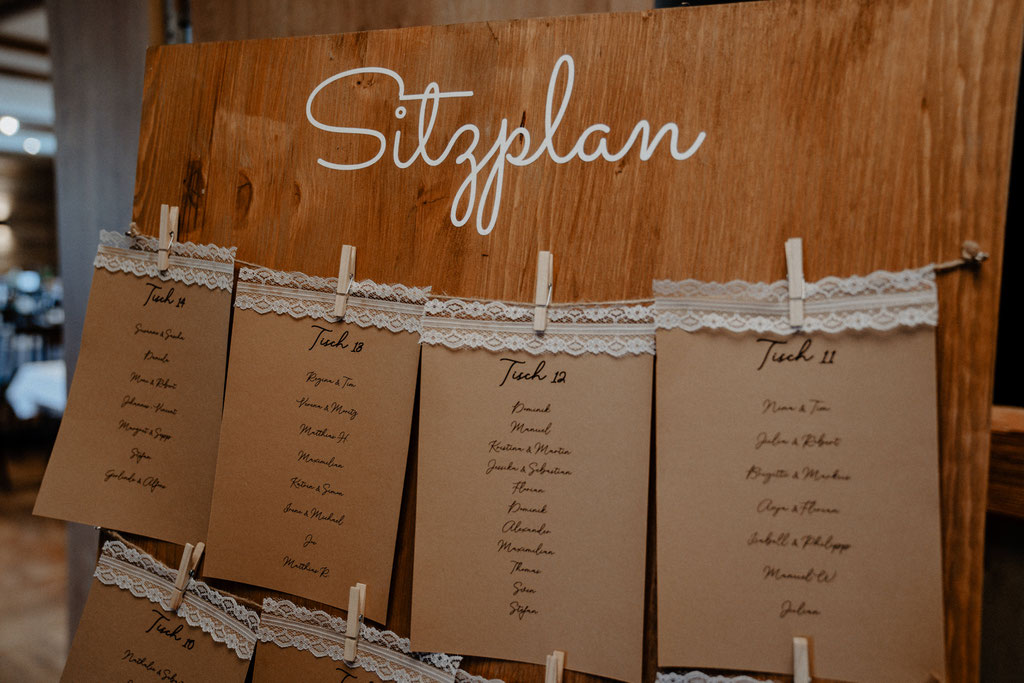 Sitzplan
Tisch 14
Daniela
Max & Robert
Johannes-Vincent
Margret & Sepp
Stefan
Gerlinde & Alfons
Tisch 13
Regina & Tim
Verena & Moritz
Matthias H.
Maximilian
Katrin & Simon
Matthias R.
Tisch 12
Dominik
Manuel
Kristina & Martin
Jessika & Sebastian
Florian
Dominik
Alexander
Maximilian
Thomas
Stefan
Tisch 11
Nina & Tim
Julia & Robert
Brigitte & Markus
Anja & Florian
Isabell & Philipp
Manuel W.
Julian
Tisch 10